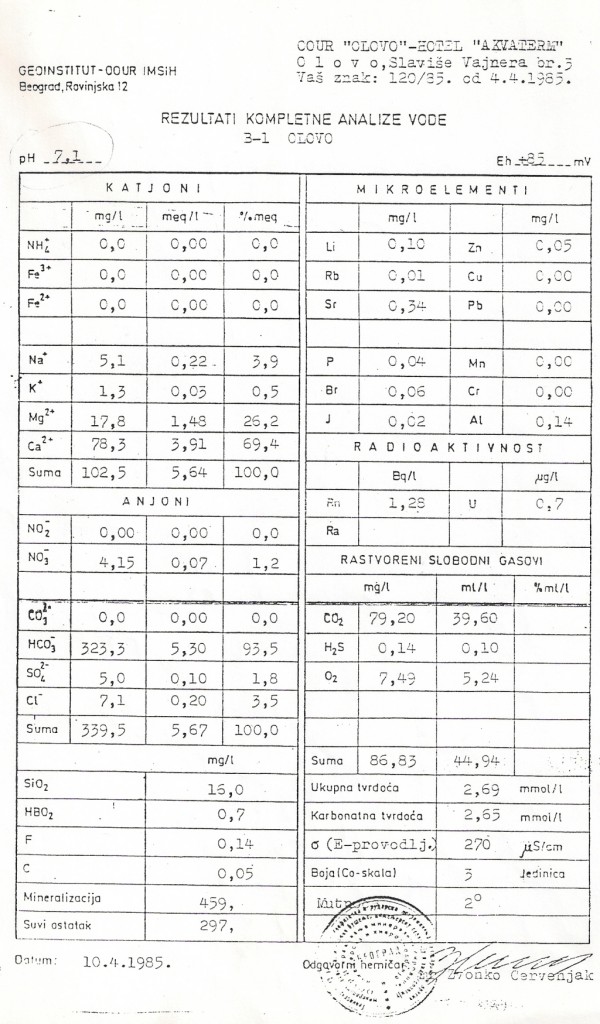 COUR "OLOVO"-HOTEL "AKVATERM"
O l o v o, Slaviše Vajnera br.5
Vaš znak: 120/85. od 4.4.1985.
GEOINSTITUT-OOUR IMSIH
Beograd, Rovinjska 12
REZULTATI KOMPLETNE ANALIZE VODE
B-1 OLOVO
pH 7,1
Eh +85 mV
KATJONI
mg/l meq/l %meq
NH₄⁺ 0,0 0,00 0,0
Fe³⁺ 0,0 0,00 0,0
Fe²⁺ 0,0 0,00 0,0
Na⁺ 5,1 0,22 3,9
K⁺ 1,3 0,03 0,5
Mg²⁺ 17,8 1,48 26,2
Ca²⁺ 78,3 3,91 69,4
Suma 102,5 5,64 100,0
ANJONI
NO₂⁻ 0,00 0,00 0,0
NO₃⁻ 4,15 0,07 1,2
CO₃²⁻ 0,0 0,00 0,0
HCO₃⁻ 323,3 5,30 93,5
SO₄²⁻ 5,0 0,10 1,8
Cl⁻ 7,1 0,20 3,5
Suma 339,5 5,67 100,0
mg/l
SiO₂ 16,0
HBO₂ 0,7
F 0,14
C 0,05
Mineralizacija 459,
Suvi ostatak 297,
MIKROELEMENTI
mg/l mg/l
Li 0,10 Zn 0,05
Rb 0,01 Cu 0,00
Sr 0,34 Pb 0,00
P 0,04 Mn 0,00
Br 0,06 Cr 0,00
J 0,02 Al 0,14
RADIOAKTIVNOST
Bq/l µg/l
Rn 1,28 U 0,7
Ra
RASTVORENI SLOBODNI GASOVI
mg/l ml/l %ml/l
CO₂ 79,20 39,60
H₂S 0,14 0,10
O₂ 7,49 5,24
Suma 86,83 44,94
Ukupna tvrdoća 2,69 mmol/l
Karbonatna tvrdoća 2,65 mmol/l
σ (E-provodlj.) 270 µS/cm
Boja (Co-skala) 3 Jedinica
2°
БЕОГРАД
Datum: 10.4.1985.
Odgovorni hemičar
Zvonko Červenjak